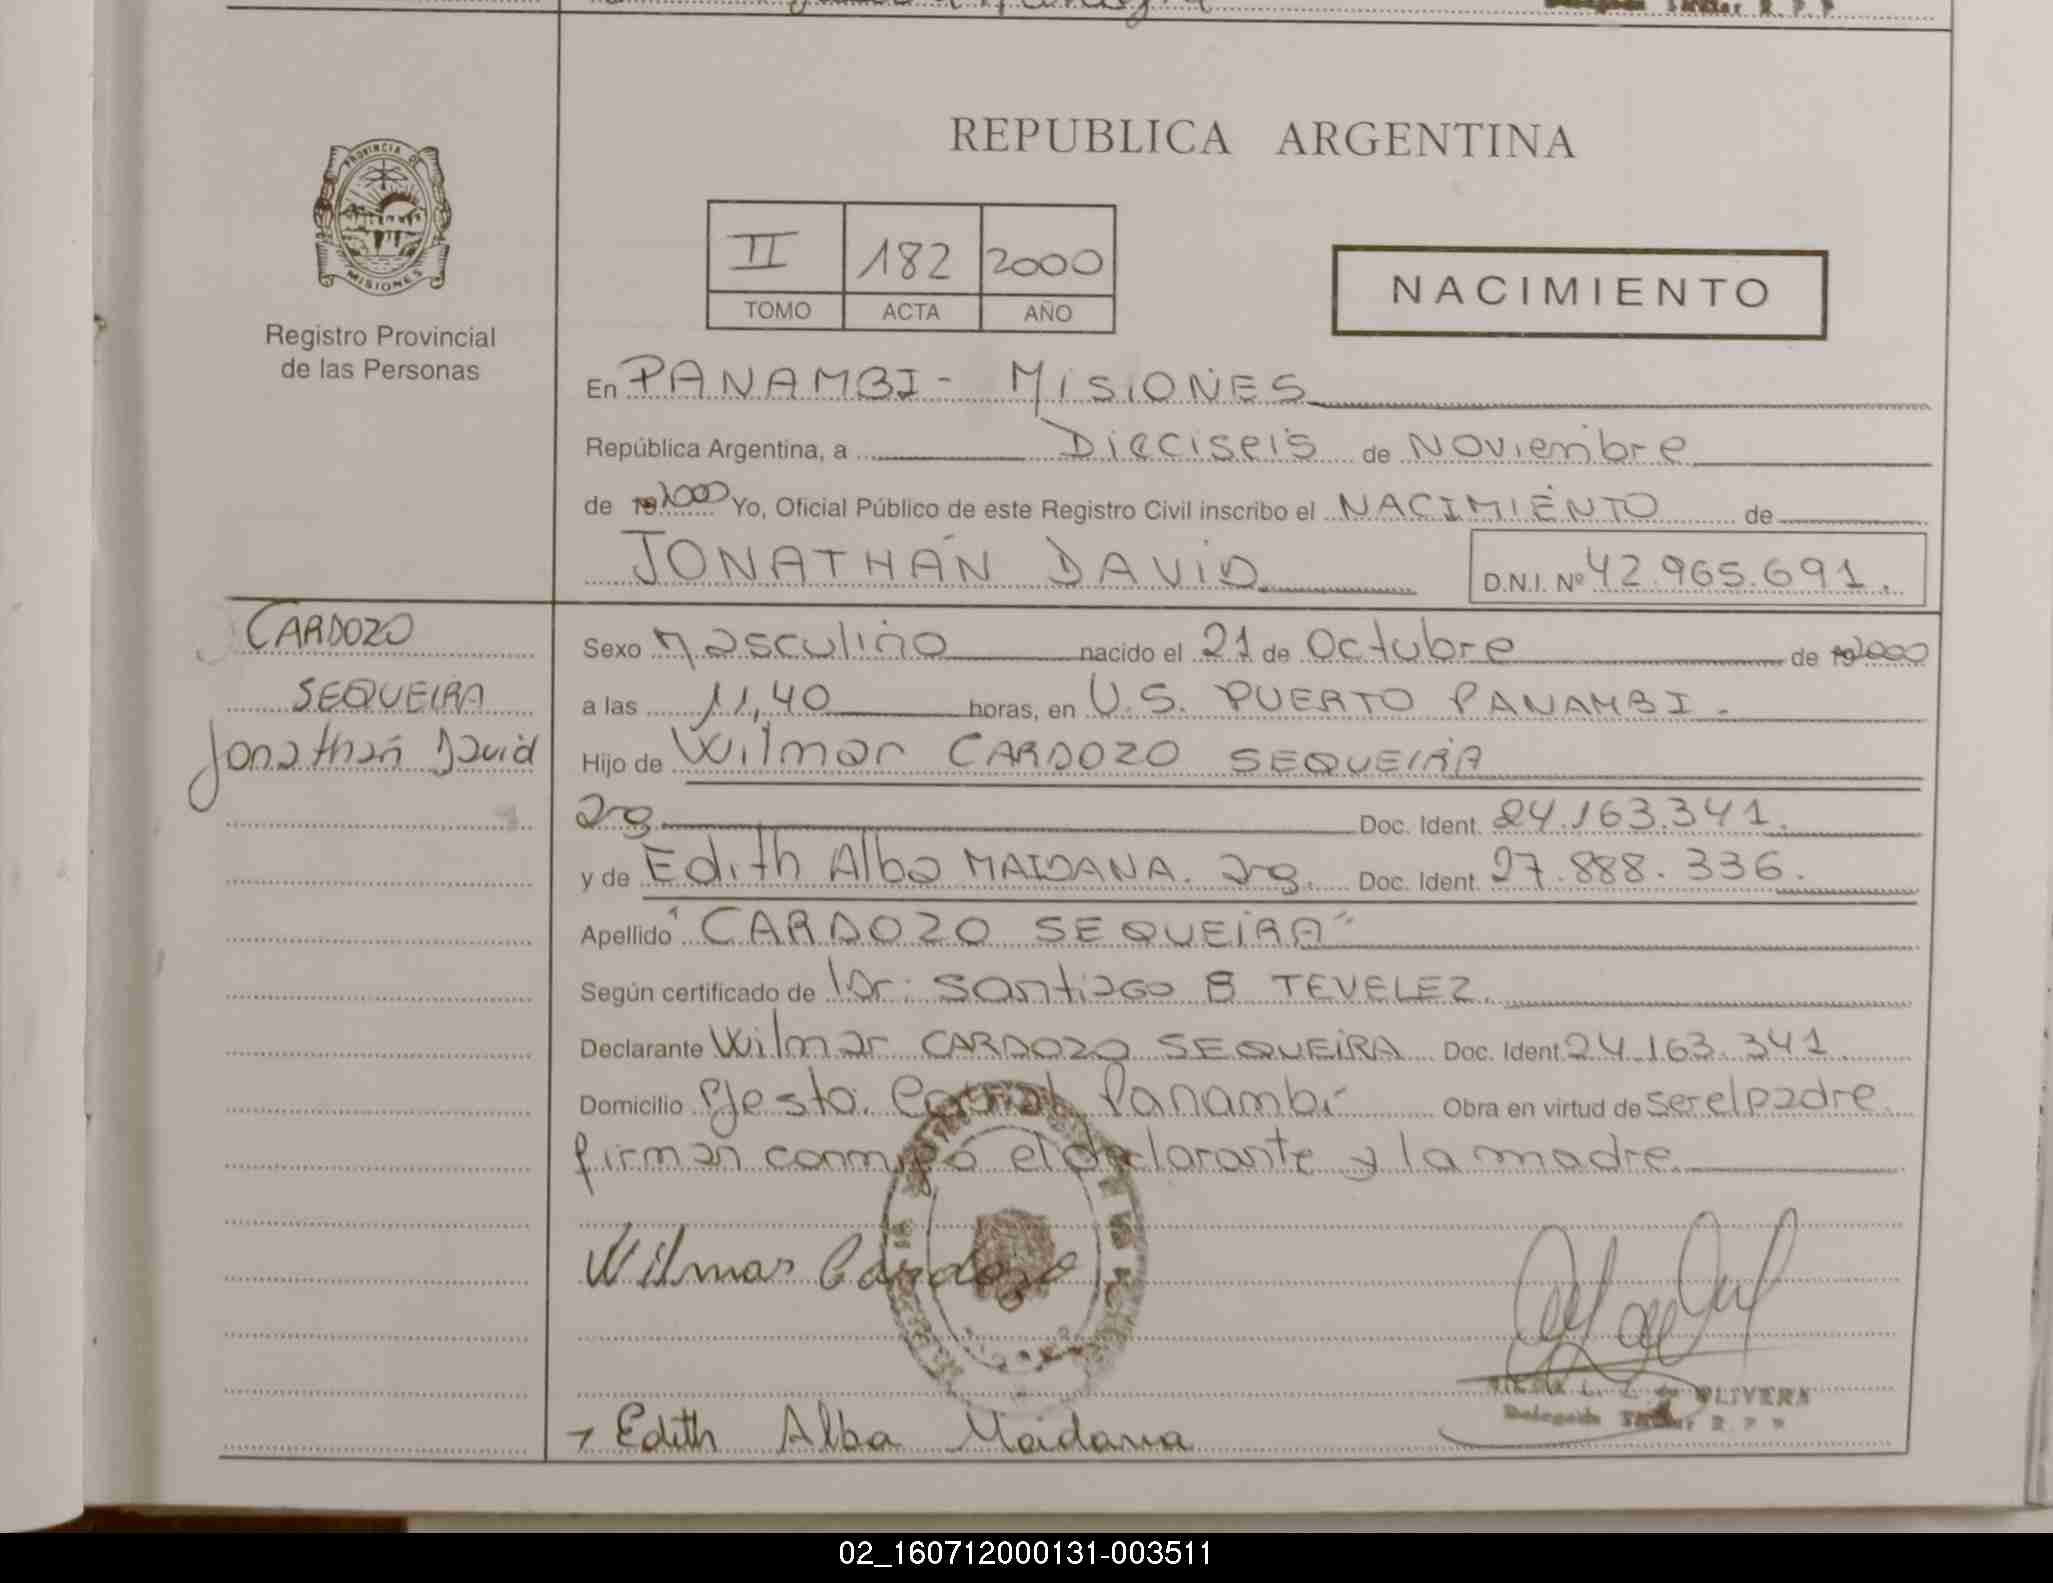 PROVINCIA DE
MISIONES
Registro Provincial
de las Personas
REPUBLICA ARGENTINA
II 182 2000
TOMO ACTA AÑO
NACIMIENTO
En PANAMBI - MISIONES
República Argentina, a Dieciseis de Noviembre
de 2000 Yo, Oficial Público de este Registro Civil inscribo el NACIMIENTO de
JONATHAN DAVID D.N.I. Nº 42.965.691.
CARDOZO
SEQUEIRA
Jonathan David
Sexo Masculino nacido el 21 de Octubre de 2000
a las 11,40 horas, en U.S. PUERTO PANAMBI.
Hijo de Wilmar CARDOZO SEQUEIRA
arg Doc. Ident. 24.163.341.
y de Edith Alba MAIDANA. arg. Doc. Ident. 27.888.336.
Apellido "CARDOZO SEQUEIRA"
Según certificado de Dr. Santiago B TEVELEZ.
Declarante Wilmar CARDOZO SEQUEIRA Doc. Ident. 24.163.341
Domicilio Panambi Obra en virtud de ser el padre.
firman conmigo el declarante y la madre
Wilmar Cardozo
OLIVERA
Delegada Titular R. P. P
Edith Alba Maidana
02_160712000131-003511